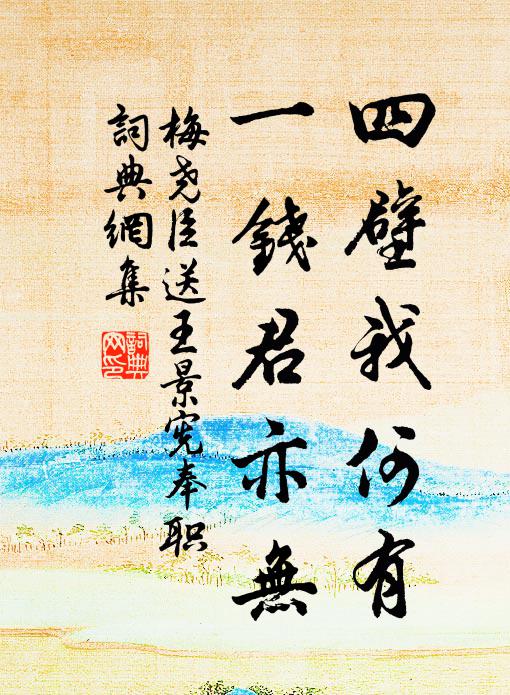 四壁我何有
一錢君亦無
梅尧臣送王景宪奉职
詞典網集
詞典網印